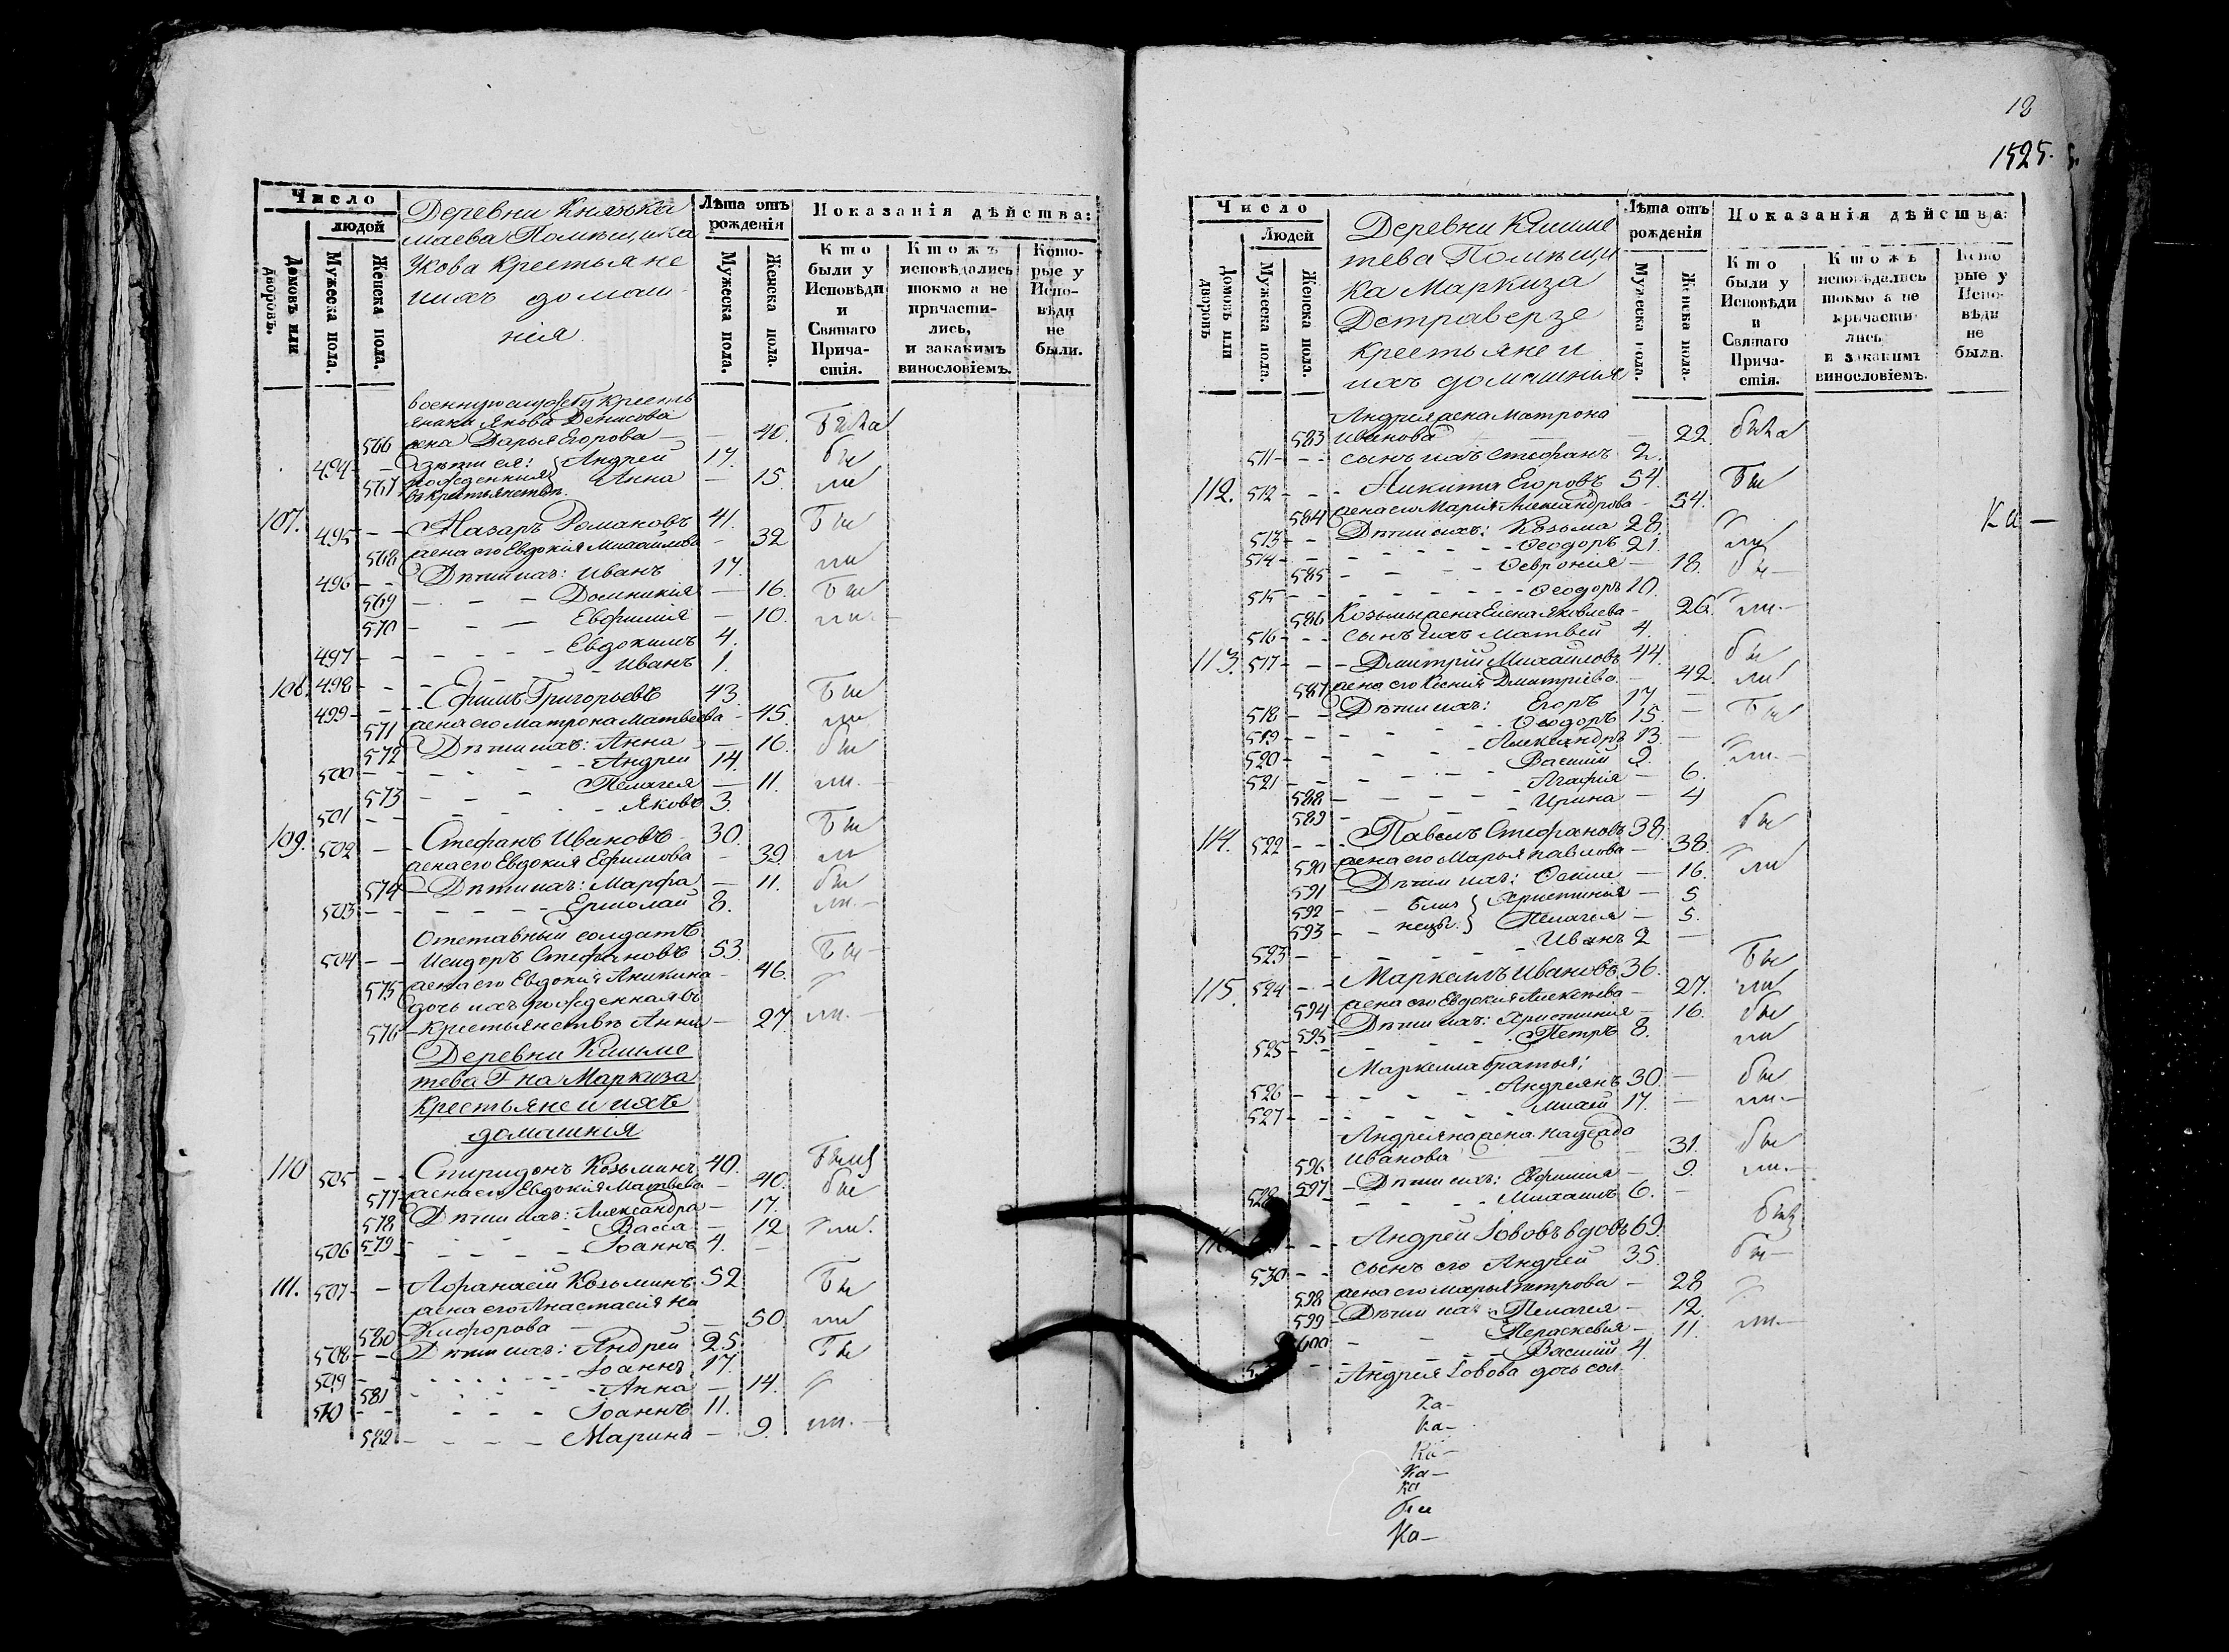 Число
людей
Домовъ или дворовъ.
Мужеска пола.
Женска пола.
Деревни Князька
маева Помѣщика
Укова Крестьяне
ихъ домаш
нія.
Лѣта отъ рожденія
Мужеска пола.
Женска пола.
Показанія дѣйства:
Кто были у Исповѣди и Святаго Причастія.
Ктожъ исповѣдались токмо а не причастились, и закакимъ винословіемъ.
Которые у Исповѣди не были.
Крестьянина Якова Денисова
566 жена Дарья Егорова — 40. была
494 дѣти ея: Андрей 17. бы
567 рожденныя въ крестьянствѣ Анна — 15. ли
107. 495 Назаръ Романовъ 41. Бы
568 жена его Евдокія Михайлова — 32
496 Дѣти ихъ: Иванъ 17. ли
569 Домникія — 16. Бы
570 Евфимія — 10. ли.
497 Евдокимъ 4.
498 Иванъ 1.
108. 499 Ефимъ Григорьевъ 43. Бы
571 жена его Матрона Матвеева 45. ли
572 Дѣти ихъ: Анна — 16. бы
500 Андрей 14.
573 Пелагея — 11. ли.
501 Яковъ 3.
109. 502 Стефанъ Ивановъ 30. Бы
жена его Евдокия Ефимова — 39. ли
574 Дѣти ихъ: Марфа — 11. бы
503 Ермолай 8. ли.
Отставный солдатъ
504 Исидоръ Стефановъ 53. Бы
575 жена его Евдокія Аникина — 46.
дочь ихъ рожденная въ
576 крестьянствѣ Анна — 27. ли.
Деревни Кишме
тева Г на Маркиза
Крестьяне и ихъ
домашнія
110 505 Спиридонъ Козьминъ 40. Былъ
577 жена его Евдокія Матвеева — 40. бы
578 Дѣти ихъ: Александра — 17.
579 Васса — 12 ли.
506 Іоаннъ 4.
111. 507 Афанасій Козьминъ 52 Бы
жена его Анастасія Ни
580 Кифорова — 50. ли
508 Дѣти ихъ: Андрей 25. Бы
509 Іоаннъ 17.
581 Анна — 14.
510 Іоаннъ 11.
582 Марина — 9. ли.
18
1525.
Число
Людей
Домовъ или дворовъ
Мужеска пола.
Женска пола.
Деревни Кишме
тева Помѣщи
ка Маркиза
Детраверзе
крестьяне и
ихъ домашния
Лѣта отъ рожденія
Мужеска пола.
Женска пола.
Показанія дѣйства:
Кто были у Исповѣди и Святаго Причастія.
Ктожъ исповѣдались токмо а не причастились и закакимъ винословіемъ.
Которые у Исповѣди не были.
Андрея жена Матрона
583 Иванова — 22. была
511 сынъ ихъ Стефанъ 2.
112. 512 Никита Егоровъ 54. Бы
584 жена его Марія Александрова 54.
513 Дѣти ихъ: Козьма 28.
514 Ѳеодоръ 21. ли
585 Ѳевронія — 18. бы
515 Ѳеодоръ 10.
586 Козьмы жена Елена Яковлева — 26. ли.
516 сынъ ихъ Матвей 4.
Ка —
113. 517 Дмитрій Михайловъ 44. бы
587 жена его Ксенія Дмитріева — 42. ли
518 Дѣти ихъ: Егоръ 17 —
519 Ѳеодоръ 15. — Бы
520 Александръ 13. —
521 Василій 9. ли.
588 Агафія — 6.
589 Ирина — 4
114. 522 Павелъ Стефановъ 38. бы
590 жена его Марья Павлова — 38.
591 Дѣти ихъ: — 16. ли
592 Близ Христинія — 5
593 нецы. Пелагея — 5.
523 Иванъ 2 —
115. 524 Маркеллъ Ивановъ 36. Бы
594 жена его Евдокия Алексѣева — 27. ли
595 Дѣти ихъ: Христинія — 16. бы
525 Петръ 8. ли
Маркелла братья:
526 Андреянъ 30. — бы
527 17. — ли.
Андреяна жена Надежда
596 Иванова — 31. бы
597 Дѣти ихъ: Евфимія — 9. ли.
528 Михаилъ 6. —
Андрей Іововъ вдовъ 69. былъ
530 сынъ его Андрей 35. бы
598 жена его Марья Петрова — 28
599 Дѣти ихъ Пелагея — 12.
600 Параскевія — 11. ли.
Василій 4.
Андрея Іовова дочь сол
Ка-
Ка-
Ка-
Ка-
Ка
Бы
Ка-